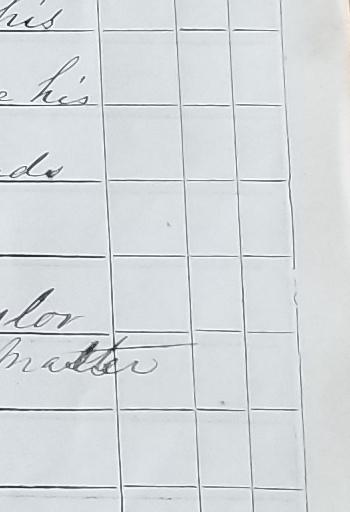 his
e his
ds
ylor
matter